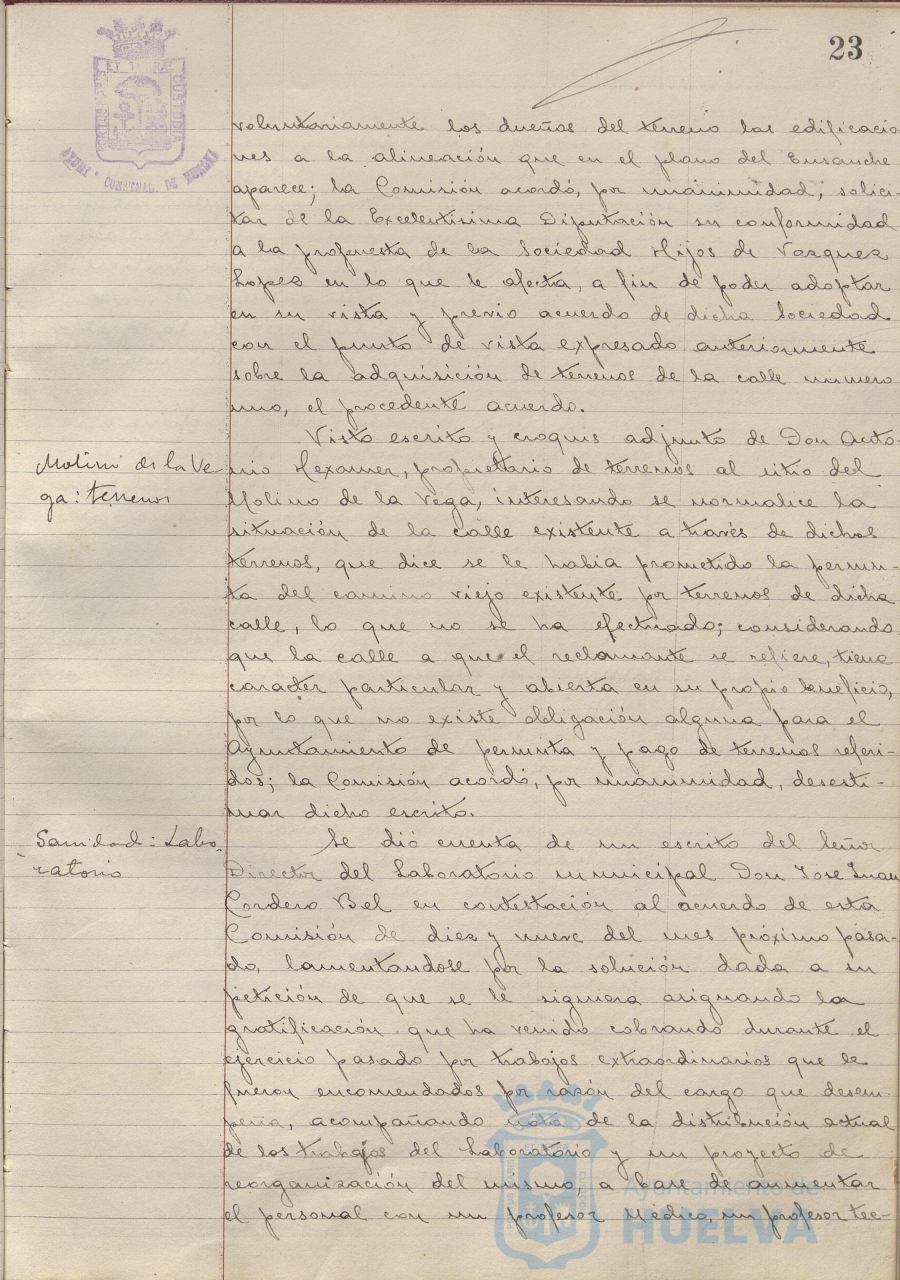 23
PORTUS MARIS ET TERRÆ CUSTODIA
AYUNT. CONSTNAL. DE HUELVA
voluntariamente los dueños del terreno las edificacio-
nes a la alineación que en el plano del Ensanche
aparece; la Comisión acordó, por unanimidad, solici-
tar de la Excelentisima Diputación su conformidad
a la propuesta de la Sociedad Hijos de Vazquez
Lopez en lo que le afecta, a fin de poder adoptar
en su vista y previo acuerdo de dicha Sociedad
con el punto de vista expresado anteriormente
sobre la adquisición de terrenos de la calle numero
uno, el procedente acuerdo.
Molino de la Ve-
ga: terrenos
Visto escrito y croquis adjunto de Don Anto-
nio Hexamer, propietario de terrenos al sitio del
Molino de la Vega, interesando se normalice la
situación de la calle existente a través de dichos
terrenos, que dice se le habia prometido la permu-
ta del camino viejo existente por terrenos de dicha
calle, lo que no se ha efectuado; considerando
que la calle a que el reclamante se refiere, tiene
caracter particular y abierta en su propio beneficio,
por lo que no existe obligación alguna para el
Ayuntamiento de permuta y pago de terrenos referi-
dos; la Comisión acordó, por unanimidad, desesti-
mar dicho escrito.
Sanidad: Labo-
ratorio
Se dió cuenta de un escrito del Señor
Director del Laboratorio municipal Don Jose Juan
Cordero Bel en contestación al acuerdo de esta
Comisión de diez y nueve del mes próximo pasa-
do, lamentandose por la solución dada a su
petición de que se le siguiera asignando la
gratificación que ha venido cobrando durante el
ejercicio pasado por trabajos extraordinarios que le
fueron encomendados por razón del cargo que desem-
peña, acompañando nota de la distribución actual
de los trabajos del Laboratorio y un proyecto de
reorganización del mismo, a base de aumentar
el personal con un profesor Médico, un profesor tec-
Ayuntamiento de
HUELVA